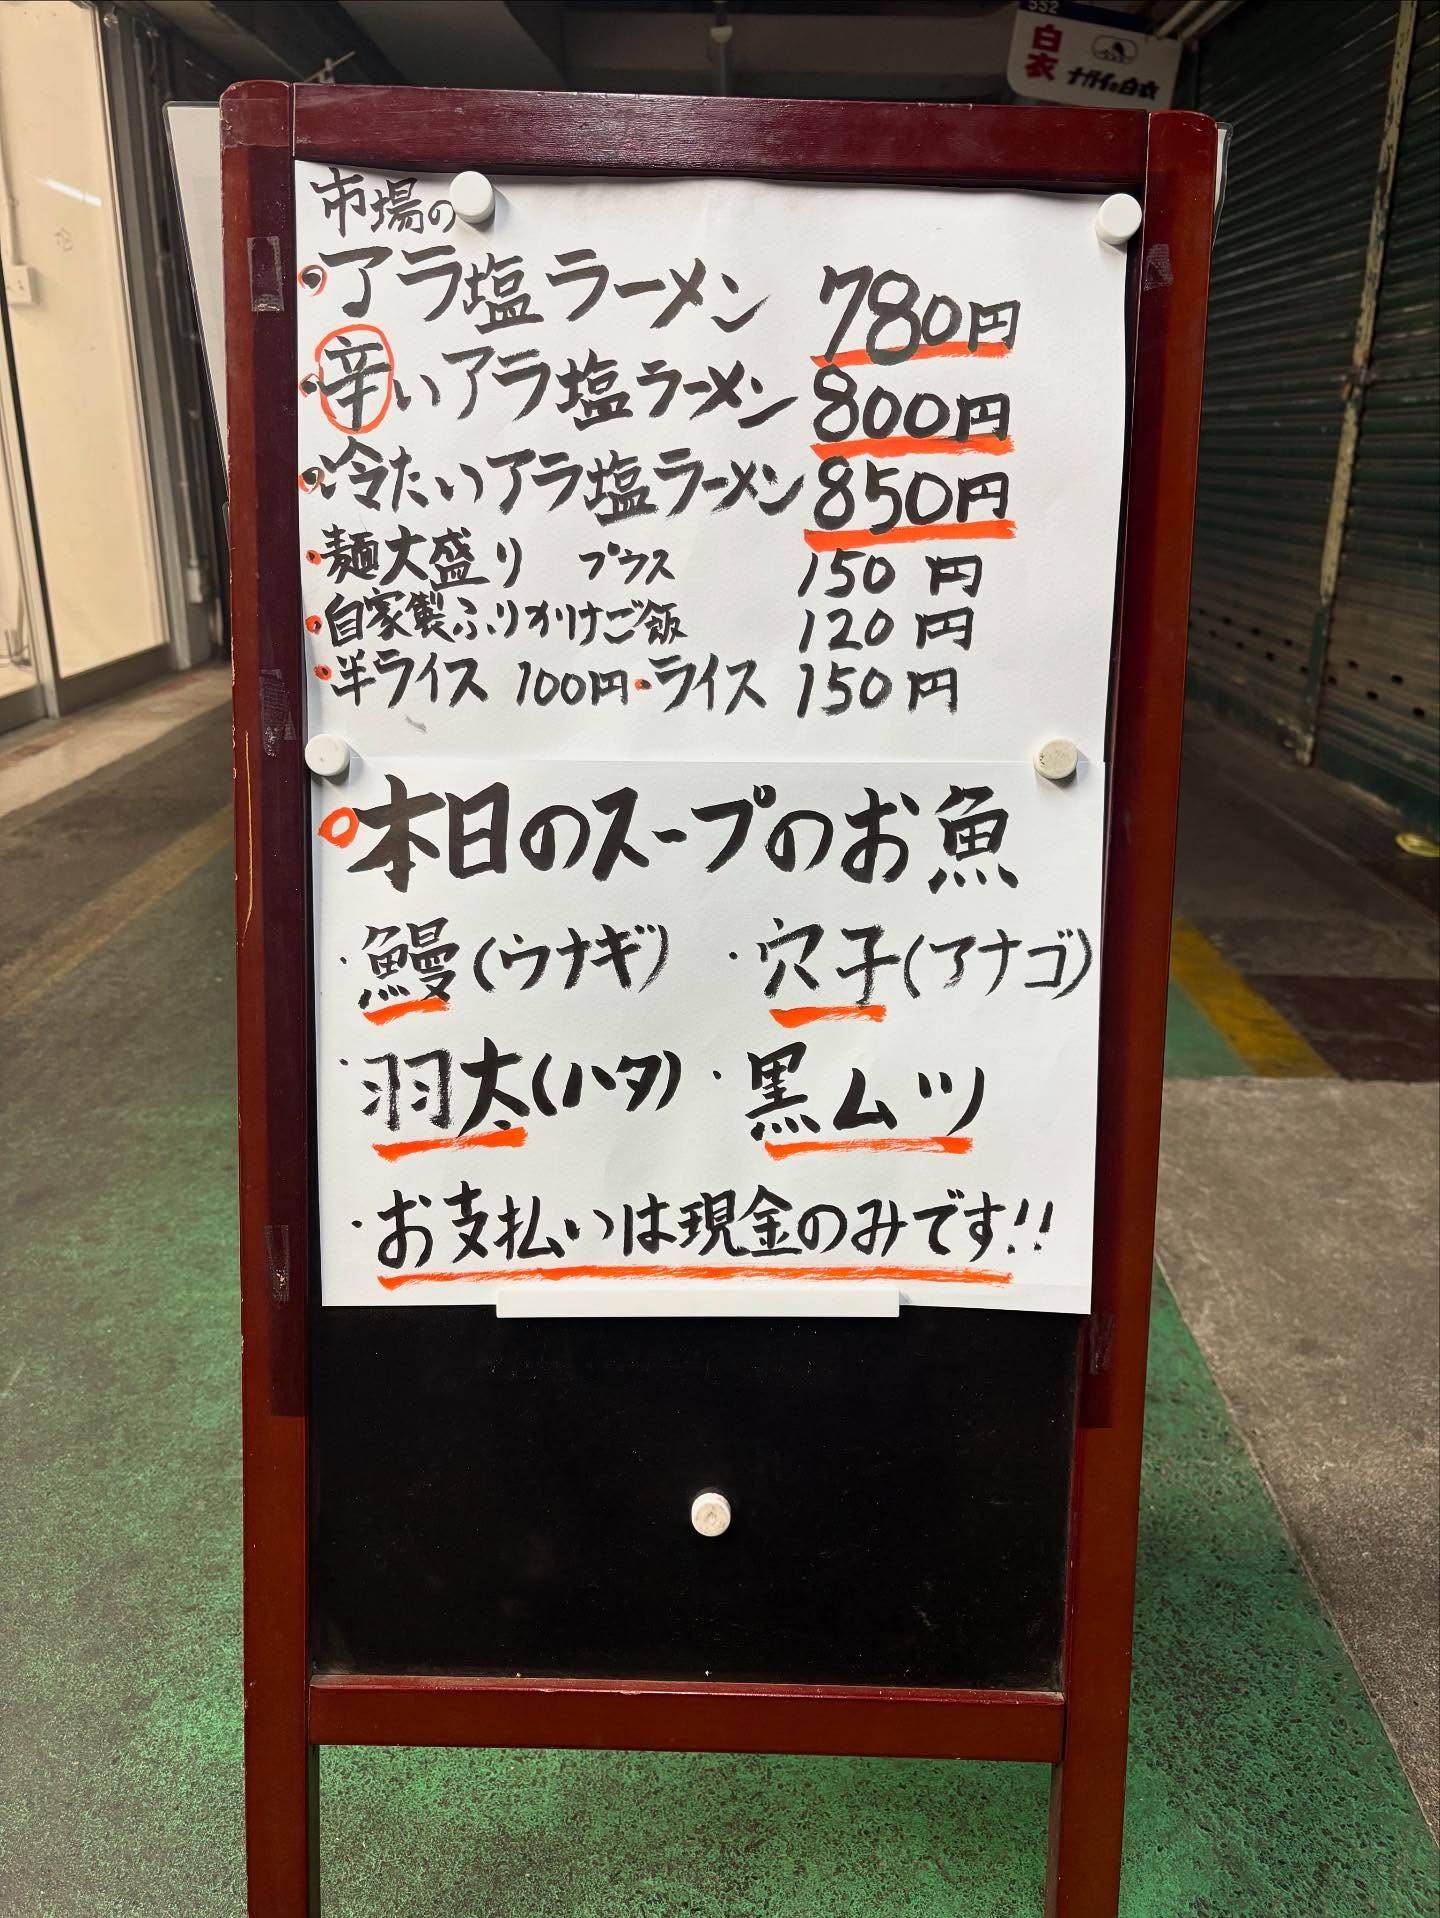 552
白衣
ナガイの白衣
市場の
・アラ塩ラーメン 780円
・辛いアラ塩ラーメン 800円
・冷たいアラ塩ラーメン 850円
・麺大盛り プラス 150円
・自家製ふりかけご飯 120円
・半ライス 100円・ライス 150円
○本日のスープのお魚
・鰻(ウナギ) ・穴子(アナゴ)
・羽太(ハタ) ・黒ムツ
・お支払いは現金のみです!!